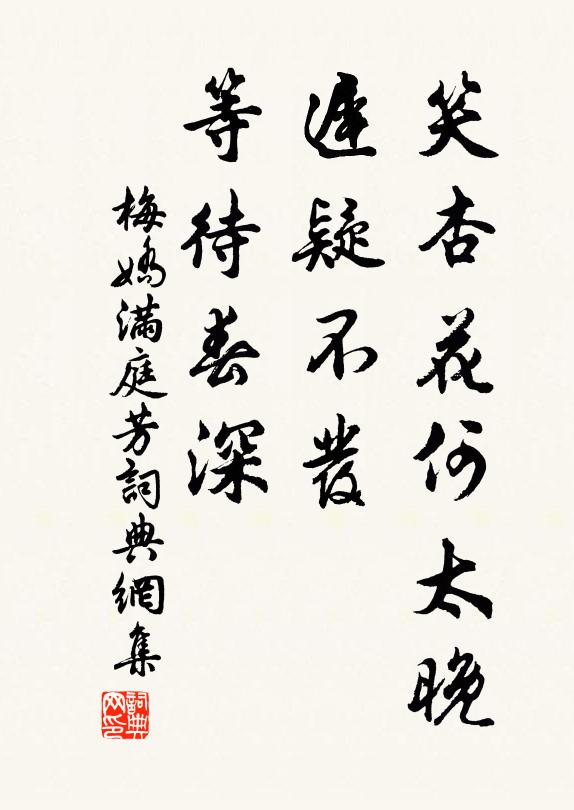 笑杏花何太晚
遲疑不發
等待春深
梅嬌滿庭芳詞典網集
詞典網印